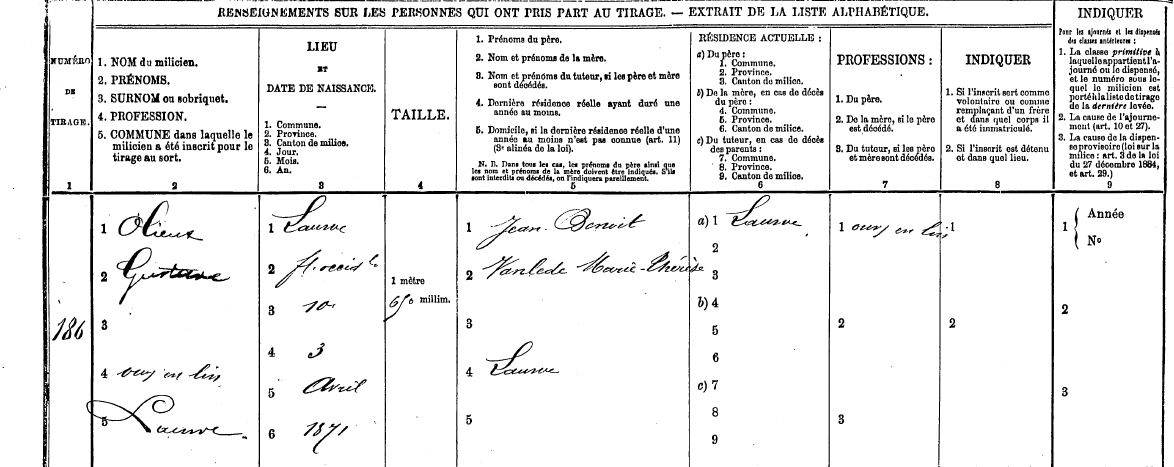 RENSEIGNEMENTS SUR LES PERSONNES QUI ONT PRIS PART AU TIRAGE. — EXTRAIT DE LA LISTE ALPHABÉTIQUE.
NUMÉRO
DE
TIRAGE.
1
1. NOM du milicien.
2. PRÉNOMS.
3. SURNOM ou sobriquet.
4. PROFESSION.
5. COMMUNE dans laquelle le
milicien a été inscrit pour le
tirage au sort.
2
LIEU
ET
DATE DE NAISSANCE.
1. Commune.
2. Province.
3. Canton de milice.
4. Jour.
5. Mois.
6. An.
3
TAILLE.
4
1. Prénoms du père.
2. Nom et prénoms de la mère.
3. Nom et prénoms du tuteur, si les père et mère
sont décédés.
4. Dernière résidence réelle ayant duré une
année au moins.
5. Domicile, si la dernière résidence réelle d'une
année au moins n'est pas connue (art. 11)
(3e alinéa de la loi).
N. B. Dans tous les cas, les prénoms du père ainsi que
les nom et prénoms de la mère doivent être indiqués. S'ils
sont interdits ou décédés, on l'indiquera pareillement.
5
RÉSIDENCE ACTUELLE :
a) Du père :
1. Commune.
2. Province.
3. Canton de milice.
b) De la mère, en cas de décès
du père :
4. Commune.
5. Province.
6. Canton de milice.
c) Du tuteur, en cas de décès
des parents :
7. Commune.
8. Province.
9. Canton de milice.
6
PROFESSIONS :
1. Du père.
2. De la mère, si le père
est décédé.
3. Du tuteur, si les père
et mère sont décédés.
7
INDIQUER
1. Si l'inscrit sert comme
volontaire ou comme
remplaçant d'un frère
et dans quel corps il
a été immatriculé.
2. Si l'inscrit est détenu
et dans quel lieu.
8
INDIQUER
Pour les ajournés et les dispensés
des classes antérieures :
1. La classe primitive à
laquelle appartient l'a-
journé ou le dispensé,
et le numéro sous le-
quel le milicien est
porté à la liste de tirage
de la dernière levée.
2. La cause de l'ajourne-
ment (art. 10 et 27).
3. La cause de la dispen-
se provisoire (loi sur la
milice : art. 3 de la loi
du 27 décembre 1884,
et art. 29.)
9
186
1 Olieux
2 Gustave
3
4 ouv en lin
5 Lauwe.
1 Lauwe
2 fl. occid le
3 10
4 3
5 Avril
6 1871
1 mètre
650 millim.
1 Jean Benoit
2 Vanlede Marie-Thérèse
3
4 Lauwe
5
a) 1 Lauwe
2
3
b) 4
5
6
c) 7
8
9
1 ouv en lin
2
3
1
2
1 { Année
No
2
3